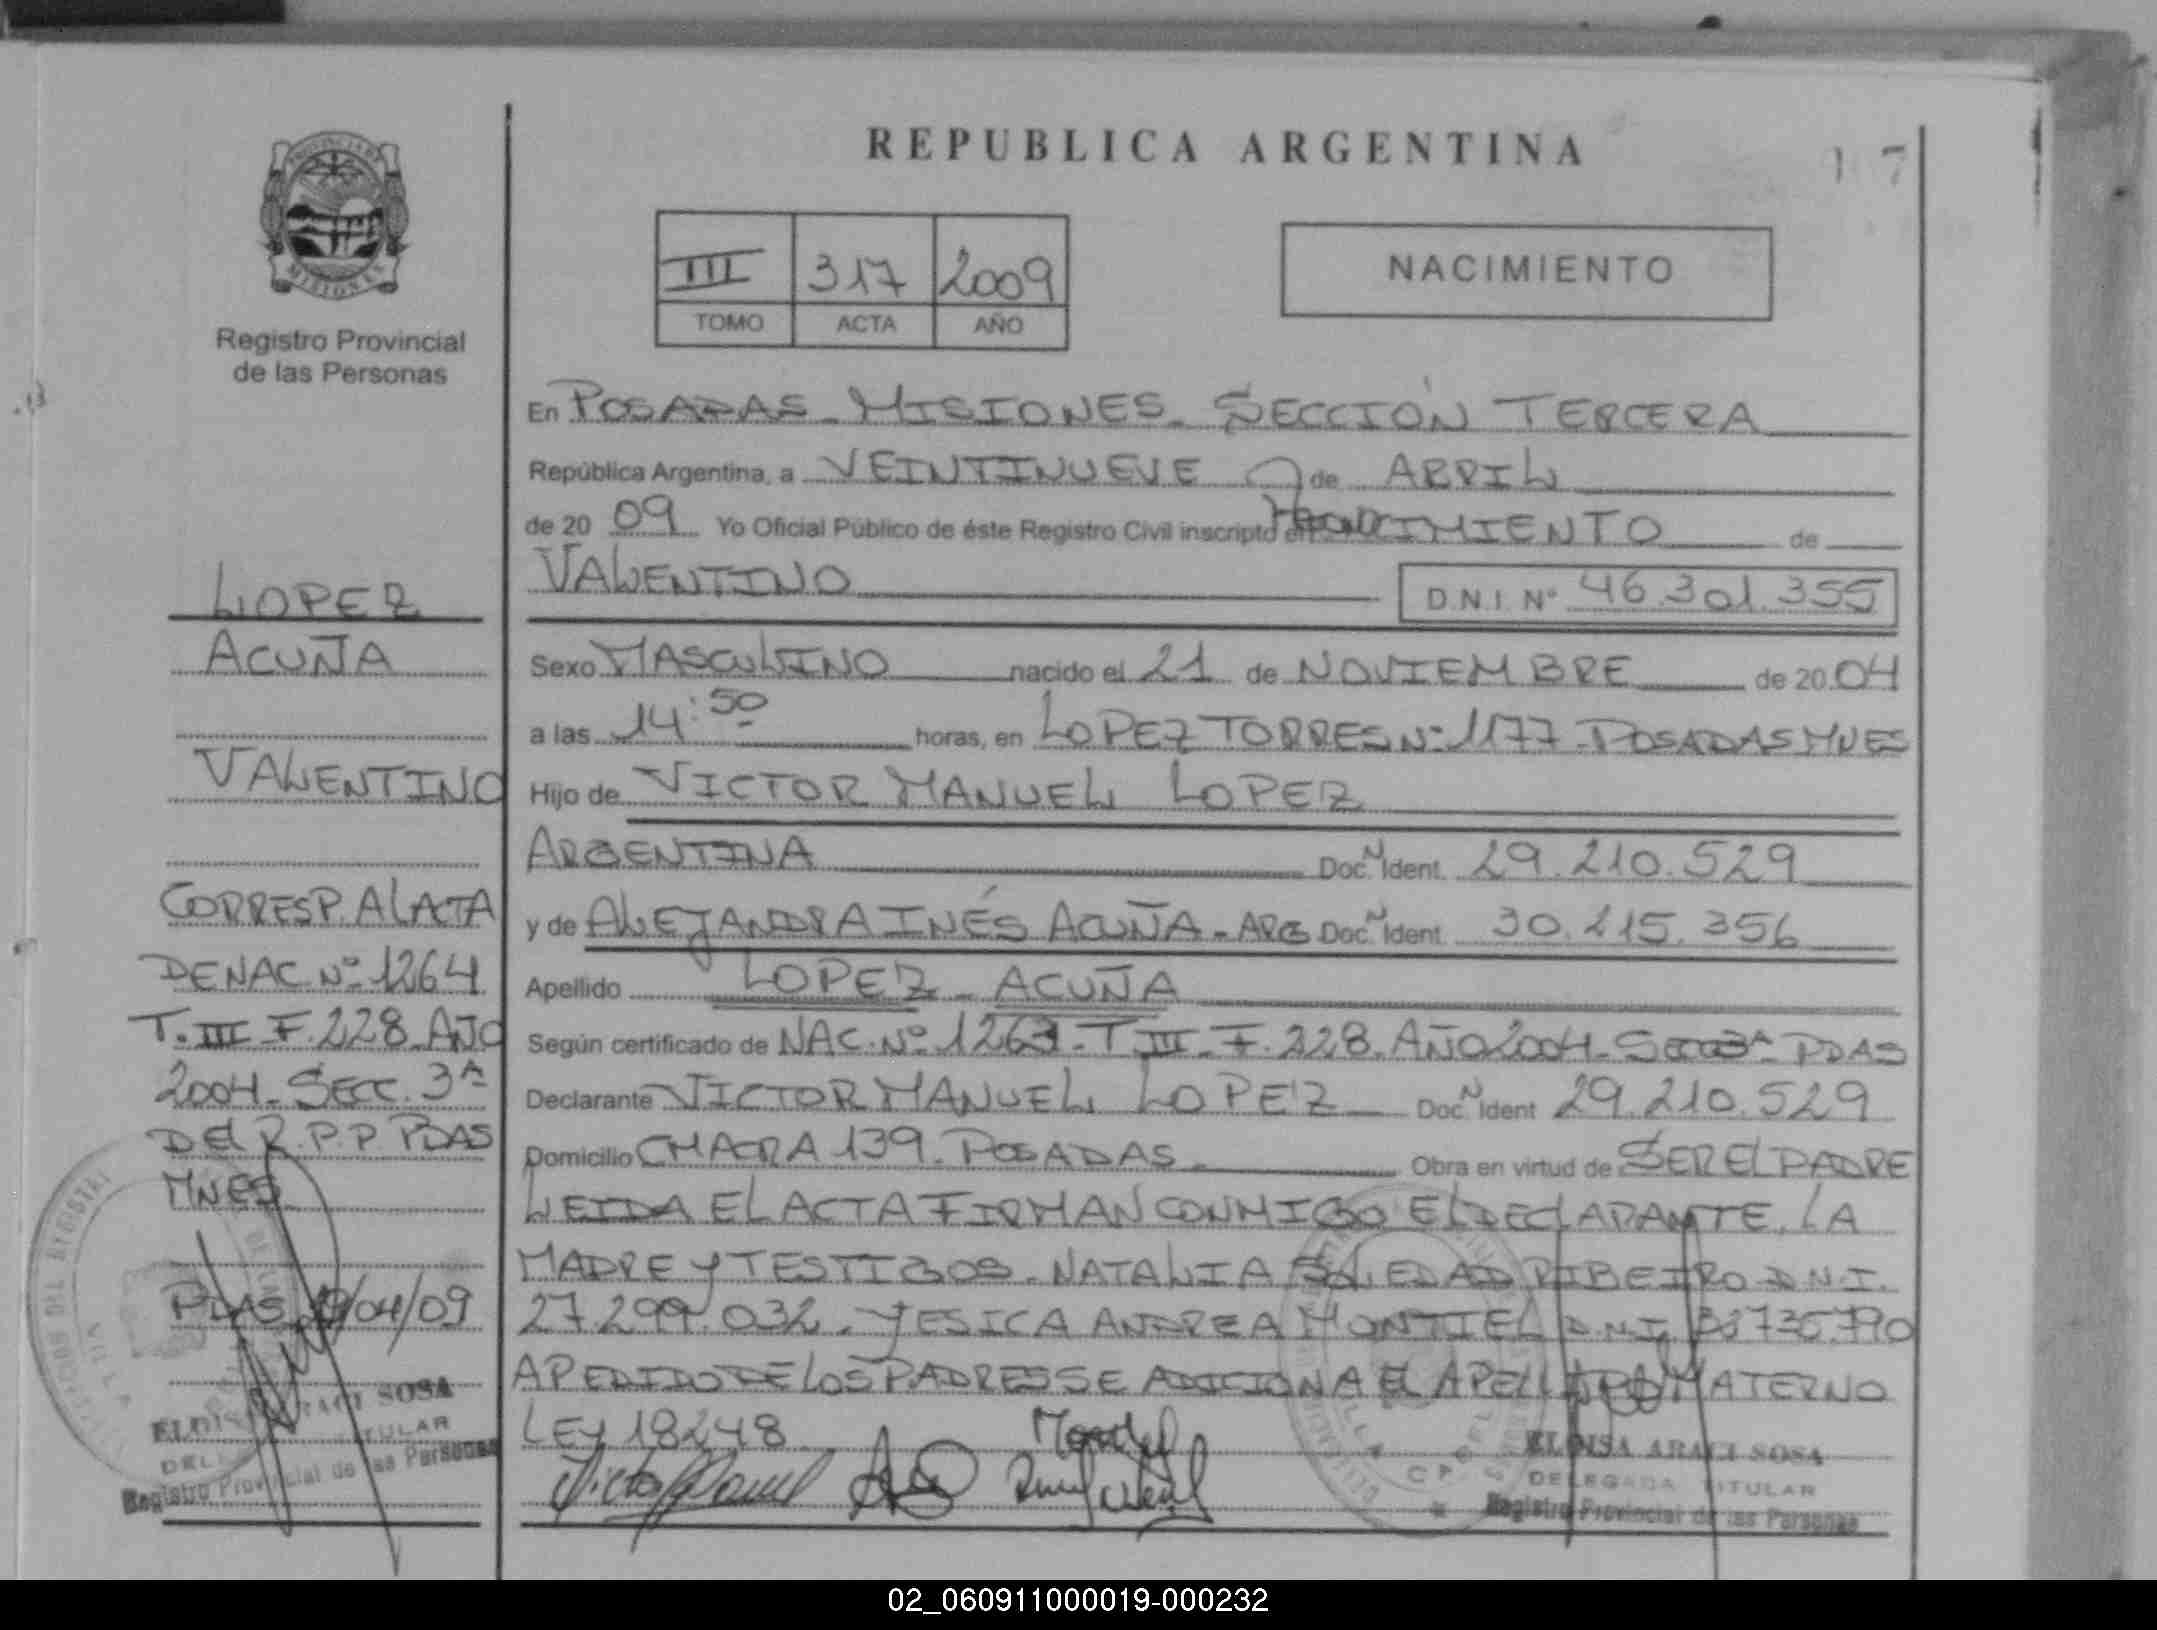 REPUBLICA ARGENTINA
1 7
III 317 2009
TOMO ACTA AÑO
NACIMIENTO
PROVINCIA DE
MISIONES
Registro Provincial
de las Personas
LOPEZ
ACUÑA
VALENTINO
CORRESP. AL ATA
DE NAC. Nº 1264
T. III F. 228 AÑO
2004 - SECC. 3ª
DEL R.P.P PDAS
MNES
PDAS /04/09
ELOISA ARACI SOSA
DELEGADA TITULAR
Registro Provincial de las Personas
En POSADAS - MISIONES - SECCIÓN TERCERA
República Argentina, a VEINTINUEVE de ABRIL
de 20 09 Yo Oficial Público de éste Registro Civil inscripto el NACIMIENTO de
VALENTINO D.N.I. Nº 46.301.355
Sexo MASCULINO nacido el 21 de NOVIEMBRE de 20 04
a las 14:50 horas, en LOPEZ TORRES Nº 1177 - POSADAS MNES
Hijo de VICTOR MANUEL LOPEZ
ARGENTINA Doc. N Ident. 29.210.529
y de ALEJANDRA INÉS ACUÑA - ARG Doc. N Ident. 30.215.356
Apellido LOPEZ - ACUÑA
Según certificado de NAC. Nº 1264 - T. III - F. 228 - AÑO 2004 - SECC 3ª PDAS
Declarante VICTOR MANUEL LOPEZ Doc. N Ident 29.210.529
Domicilio CHACRA 139 - POSADAS - Obra en virtud de SER EL PADRE
LEIDA EL ACTA FIRMAN CONMIGO EL DECLARANTE, LA
MADRE Y TESTIGOS - NATALIA SOLEDAD RIBEIRO D.N.I.
27.299.032 - YESICA ANDREA MONTIEL D.N.I.
A PEDIDO DE LOS PADRES SE ADICIONA EL APELLIDO MATERNO
LEY 18248
ELOISA ARACI SOSA
DELEGADA TITULAR
Registro Provincial de las Personas
02_060911000019-000232